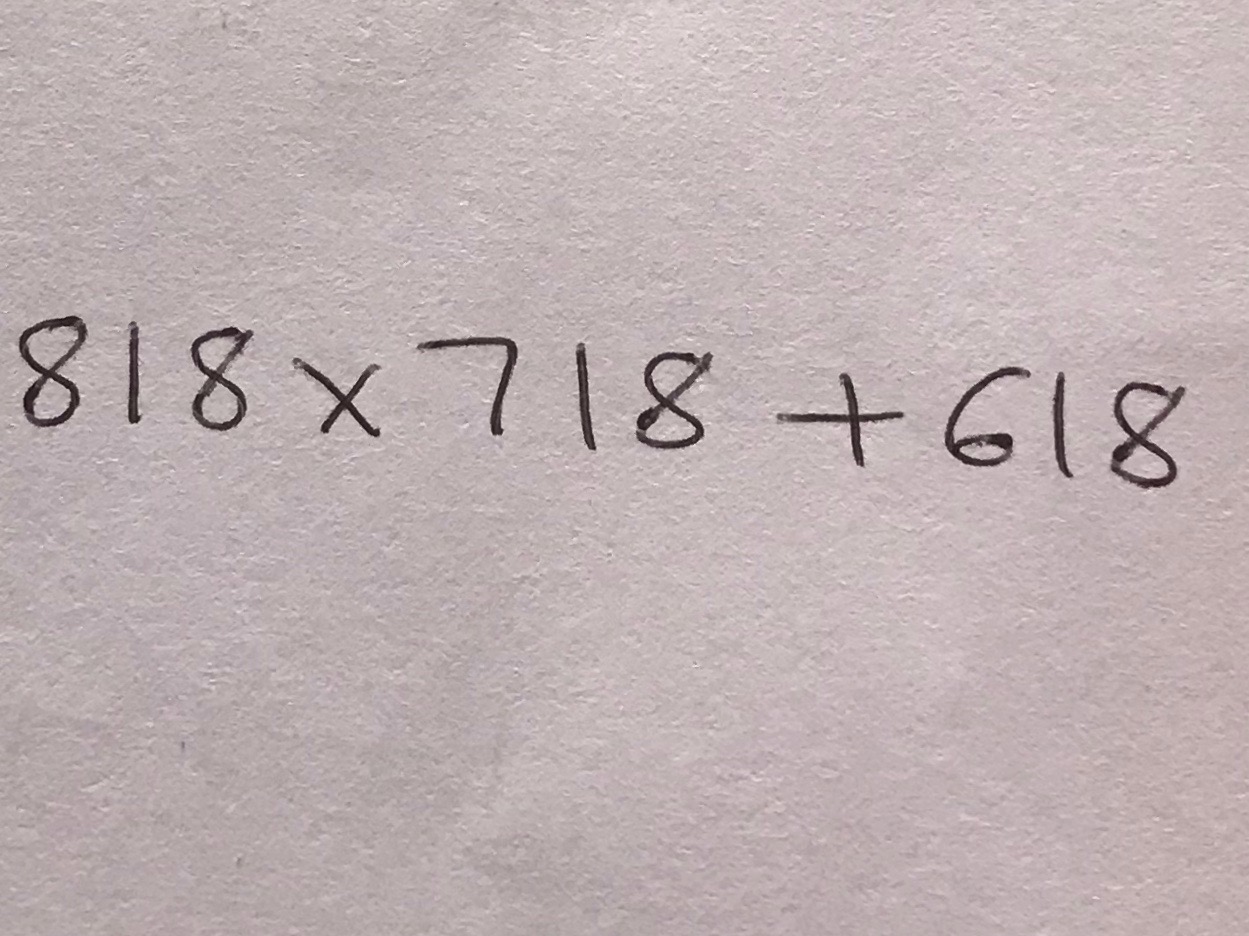 818 x 718 + 618